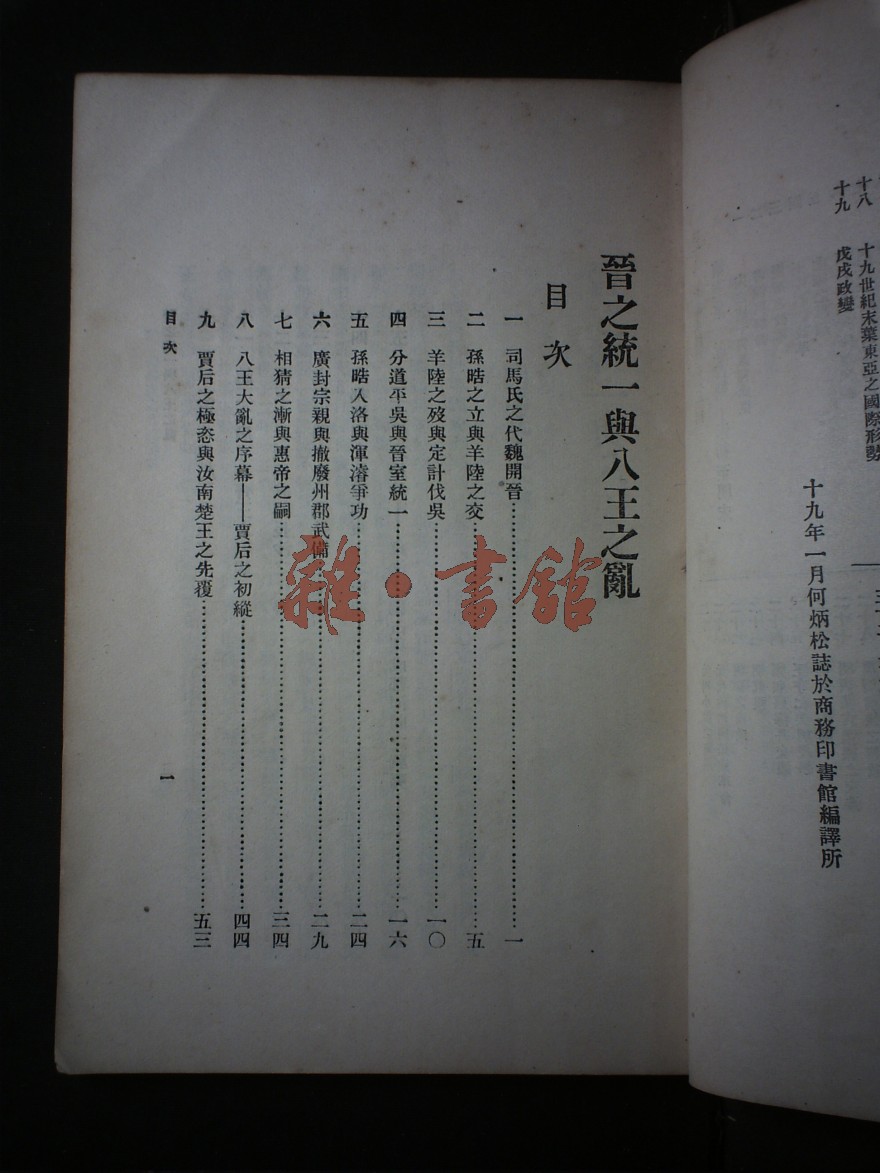 十八　十九世紀末葉東亞之國際形勢
十九　戊戌政變
十九年一月何炳松誌於商務印書館編譯所
晉之統一與八王之亂
目次
一　司馬氏之代魏開晉…………一
二　孫晧之立與羊陸之交…………五
三　羊陸之歿與定計伐吳…………一〇
四　分道平吳與晉室統一…………一六
五　孫晧入洛與渾濬爭功…………二四
六　廣封宗親與撤廢州郡武備…………二九
七　相猜之漸與惠帝之嗣…………三四
八　八王大亂之序幕——賈后之初縱…………四四
九　賈后之極恣與汝南楚王之先覆…………五三
目次
一
雜·書館